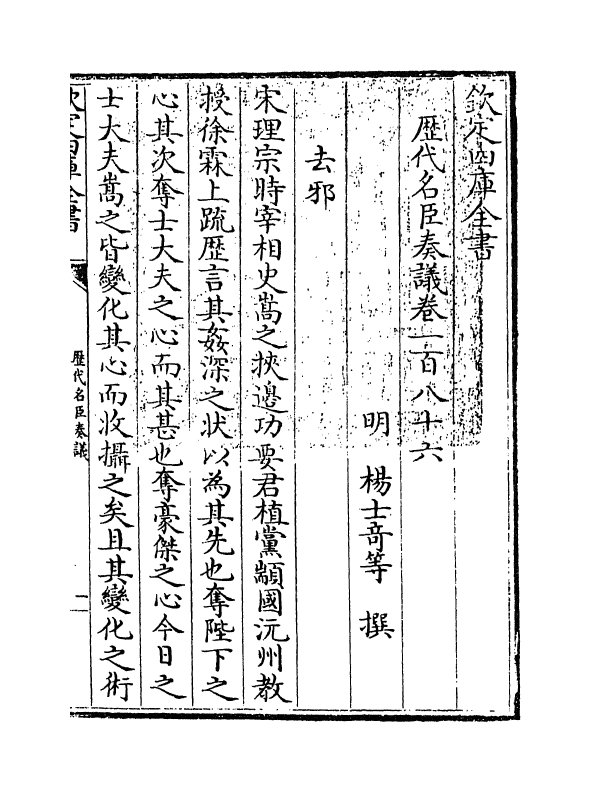 欽定四庫全書
歷代名臣奏議卷一百八十六
明 楊士奇等 撰
去邪
宋理宗時宰相史嵩之挾邊功要君植黨顓國沅州教
授徐霖上䟽歴言其姦深之状以為其先也奪陛下之
心其次奪士大夫之心而其甚也奪豪傑之心今日之
士大夫嵩之皆變化其心而收攝之矣且其變化之術
欽定四庫全書
歷代名臣奏議
一